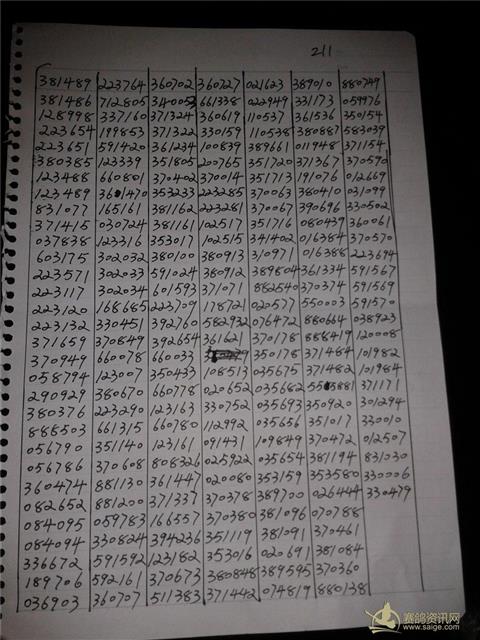 211
381489 223764 360702 360727 021623 389010 880749
381486 712805 340053 661338 022949 331173 059976
128998 337160 371324 360619 110537 361536 350154
223654 199853 371322 330159 110538 380887 583039
223651 591420 361234 100839 389661 011948 371154
380385 123339 351805 200765 351720 371367 370590
123488 660801 370402 370014 351713 191076 012669
123489 361470 353233 223285 370063 380410 031099
831077 165161 381162 223281 370067 390696 330502
371415 030724 381161 102517 351716 080439 360061
037838 123316 353017 102515 341402 016384 370570
603175 302032 380100 380913 310971 016388 223694
223571 302033 591024 380912 389804 361334 591567
223117 302034 601593 371071 882540 370374 591569
223120 168685 223709 178721 020577 550003 591570
223132 330451 392760 582932 076472 880664 038923
371659 370849 392654 361621 370178 888419 120008
370949 660078 660033 350178 371484 101982
058794 123007 350433 108513 035675 371482 101984
290929 380670 660778 020652 035682 555881 371171
380376 223290 123163 330752 035693 350920 301294
888503 661315 660780 112992 035656 351017 330010
056790 351140 123161 091431 109849 370472 012507
056786 370608 808326 025922 035654 381194 831030
360474 881130 361447 020080 353159 353580 330006
082652 881200 371337 370378 389700 026444 330479
084095 059783 166557 370380 381096 070788
084094 330824 394236 351119 381091 370461
336672 591592 123182 353016 020691 381084
189706 592161 370673 380848 389595 370360
036903 360707 511383 371442 074819 880138
赛鸽资讯网
www.saige.com